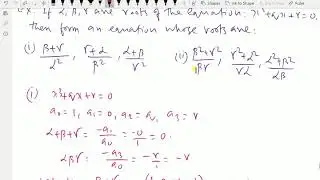 If α, β, γ are roots of the equation: x³+qx+r=0,
then form an equation whose roots are:
(i) β+γ/α², γ+α/β², α+β/γ² (ii) β²+γ²/βγ, γ²+α²/γα, α²+β²/αβ
(i) x³+qx+r=0
a₀=1, a₁=0, a₂=q, a₃=r
α+β+γ = -a₁/a₀ = -0/1 = 0.
αβγ = -a₃/a₀ = -r/1 = -r